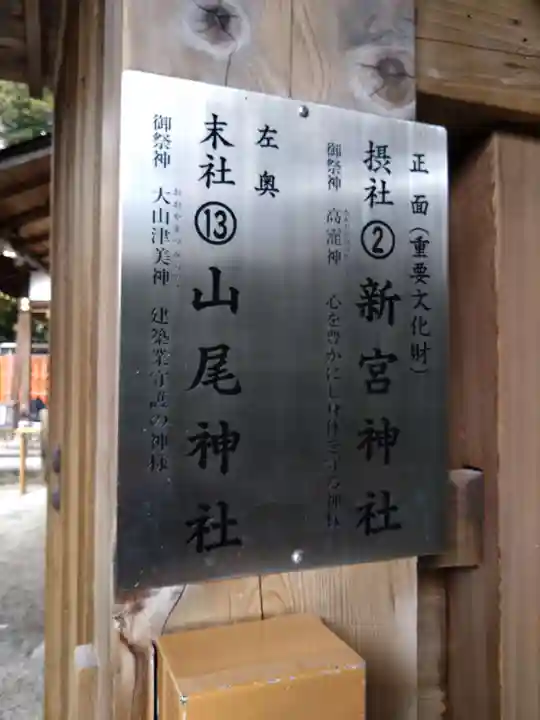 正面(重要文化財)
摂社②新宮神社
御祭神 高龗神 心を豊かにし身体を守る神様
左奥
末社⑬山尾神社
おおやまつみのかみ
御祭神 大山津美神 建築業守護の神様